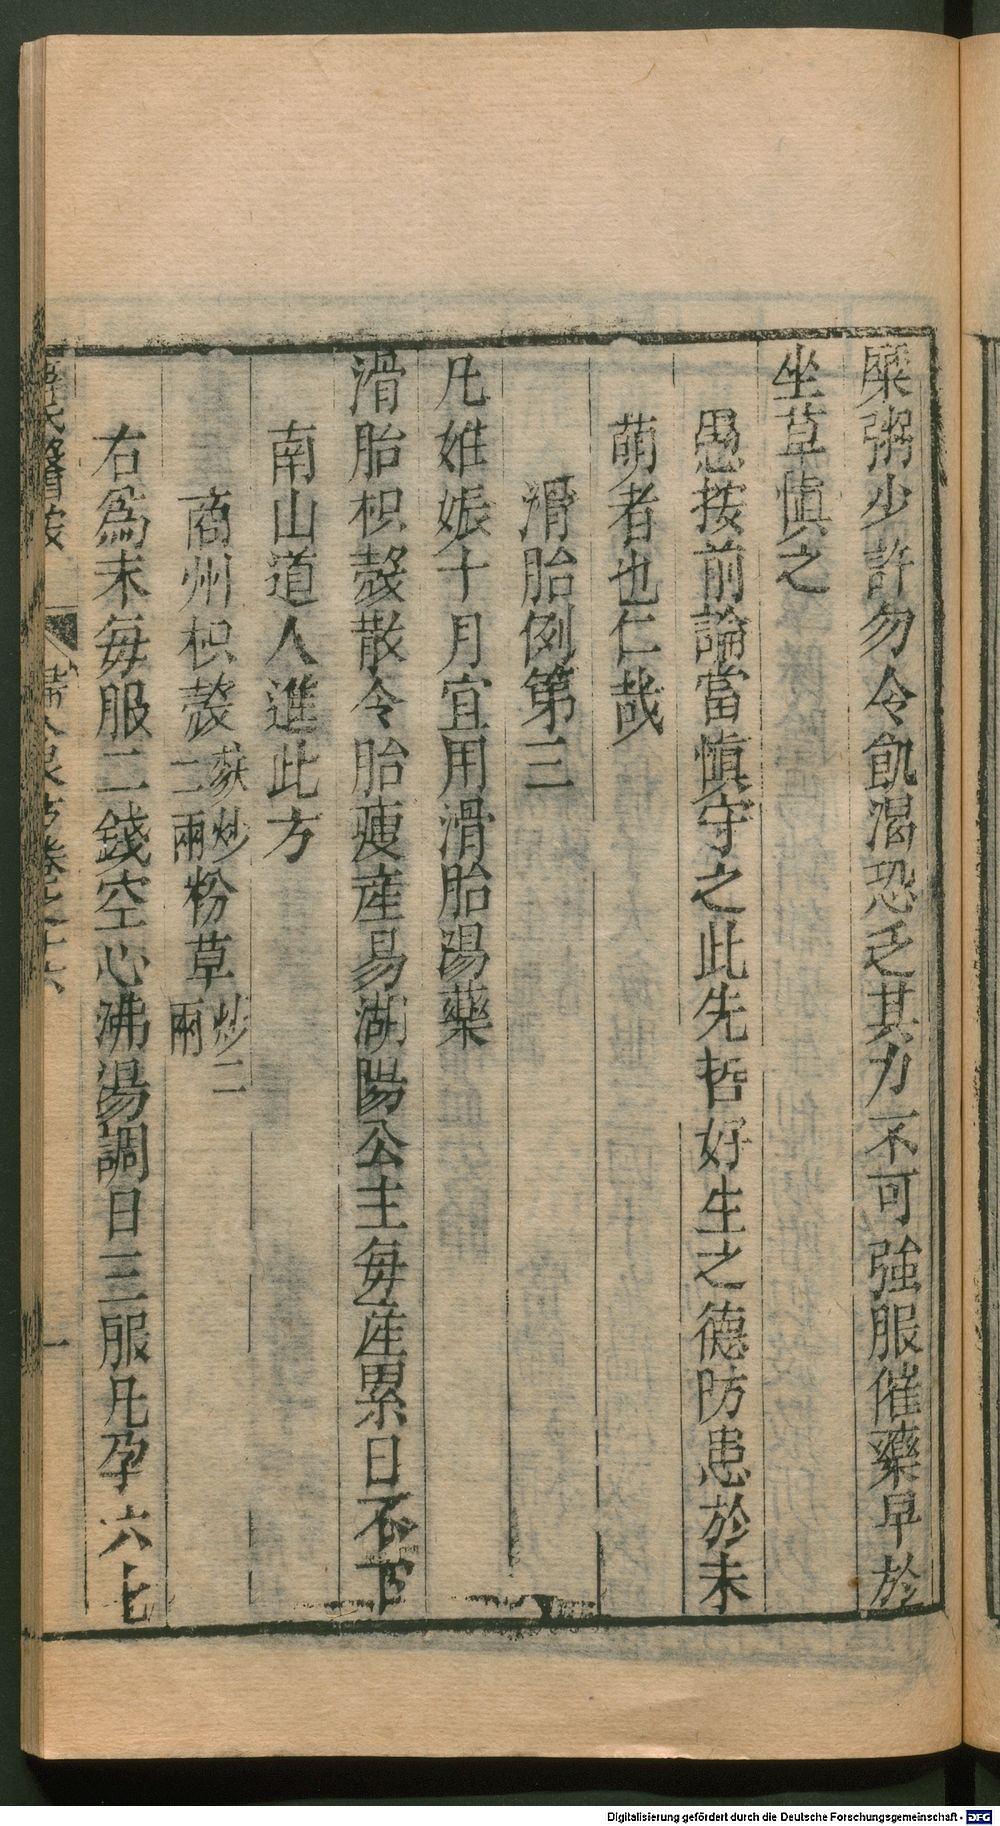 糜粥少許勿令飢渴恐乏其力不可強服催藥早於
坐草慎之
愚按前論當慎守之此先哲好生之德防患於未
萌者也仁哉
滑胎例第三
凡姙娠十月宜用滑胎湯藥
滑胎枳殼散令胎瘦産易湖陽公主每産累日不下
南山道人進此方
商州枳殼二兩麩炒粉草炒二兩
右為末每服二錢空心沸湯調日三服凡孕六七
薛氏醫按
婦人良方卷之十六
一
Digitalisierung gefördert durch die Deutsche Forschungsgemeinschaft - DFG